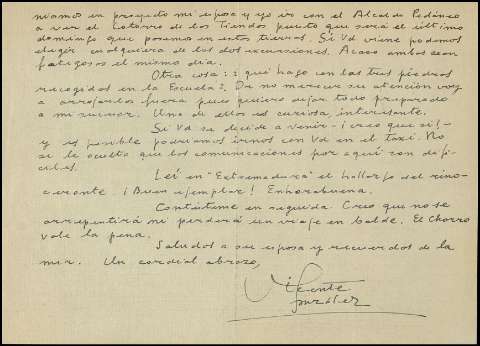 níamos en proyecto mi esposa y yo ir con el Alcalde Pedáneo
a ver el Cotarro de las Tiendas puesto que será el último
domingo que pasamos en estas tierras. Si Vd viene podemos
elegir cualquiera de las dos excursiones. Acaso ambas sean
fatigosas el mismo día.
Otra cosa: ¿qué hago con las tres piedras
recogidas en la Escuela? De no merecer su atención voy
a arrojarlas fuera pues quiero dejar todo preparado
a mi sucesor. Una de ellas es curiosa, interesante.
Si Vd se decide a venir - ¡creo que sí! -
y es posible podríamos irnos con Vd en el taxi. No
se le oculta que las comunicaciones por aquí son difí-
ciles.
Leí en "Extremadura" el hallazgo del rino-
ceronte. ¡Buen ejemplar! Enhorabuena.
Contésteme en seguida. Creo que no se
arrepentirá ni perderá un viaje en balde. El Chorro
vale la pena.
Saludos a su esposa y recuerdos de la
mía. Un cordial abrazo,
Vicente